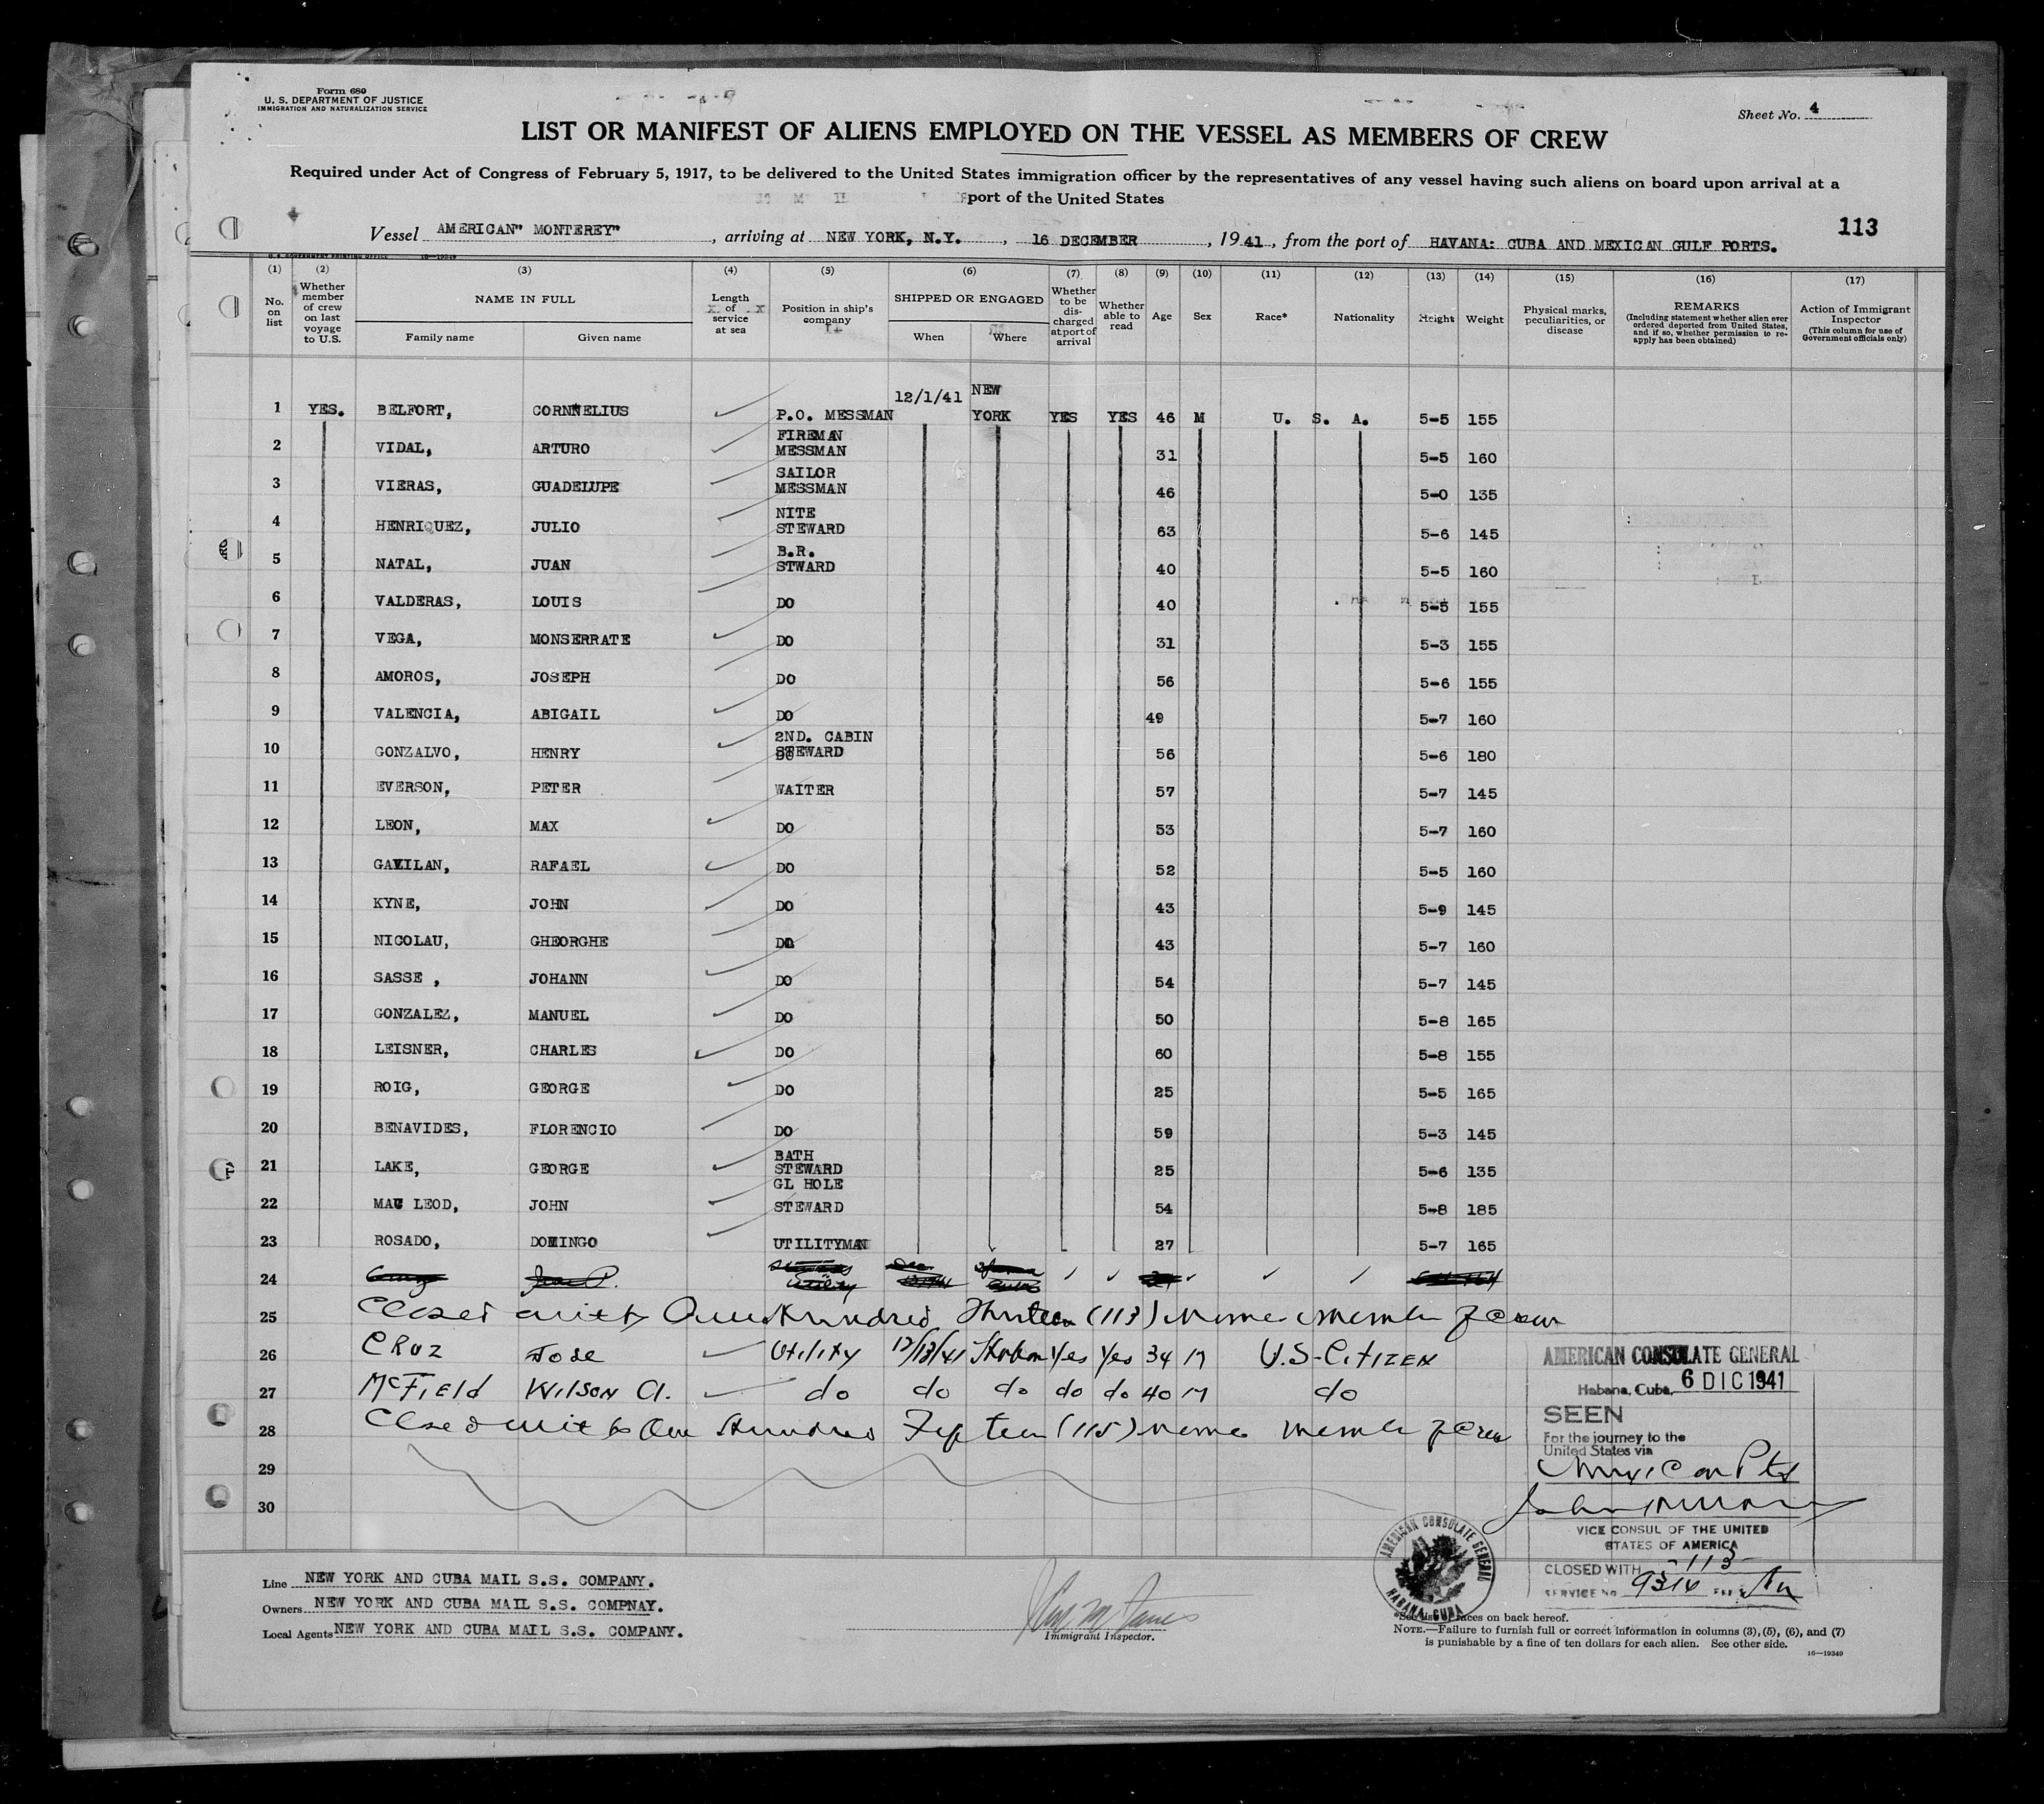 Form 680
U. S. DEPARTMENT OF JUSTICE
IMMIGRATION AND NATURALIZATION SERVICE
Sheet No. 4
LIST OR MANIFEST OF ALIENS EMPLOYED ON THE VESSEL AS MEMBERS OF CREW
Required under Act of Congress of February 5, 1917, to be delivered to the United States immigration officer by the representatives of any vessel having such aliens on board upon arrival at a
port of the United States
113
Vessel AMERICAN" MONTEREY", arriving at NEW YORK, N.Y., 16 DECEMBER, 1941, from the port of HAVANA: CUBA AND MEXICAN GULF PORTS.
U. S. GOVERNMENT PRINTING OFFICE 16—19349
(1) (2) (3) (4) (5) (6) (7) (8) (9) (10) (11) (12) (13) (14) (15) (16) (17)
No. on list
Whether member of crew on last voyage to U.S.
NAME IN FULL
Family name
Given name
Length of service at sea
Position in ship's company
SHIPPED OR ENGAGED
When
Where
Whether to be discharged at port of arrival
Whether able to read
Age
Sex
Race*
Nationality
Height
Weight
Physical marks, peculiarities, or disease
REMARKS
(Including statement whether alien ever ordered deported from United States, and if so, whether permission to reapply has been obtained)
Action of Immigrant Inspector
(This column for use of Government officials only)
1 YES. BELFORT, CORNNELIUS P.O. MESSMAN 12/1/41 NEW YORK YES YES 46 M U. S. A. 5-5 155
2 VIDAL, ARTURO FIREMAN MESSMAN 31 5-5 160
3 VIERAS, GUADELUPE SAILOR MESSMAN 46 5-0 135
4 HENRIQUEZ, JULIO NITE STEWARD 63 5-6 145
5 NATAL, JUAN B.R. STWARD 40 5-5 160
6 VALDERAS, LOUIS DO 40 5-5 155
7 VEGA, MONSERRATE DO 31 5-3 155
8 AMOROS, JOSEPH DO 56 5-6 155
9 VALENCIA, ABIGAIL DO 49 5-7 160
10 GONZALVO, HENRY 2ND. CABIN STEWARD 56 5-6 180
11 EVERSON, PETER WAITER 57 5-7 145
12 LEON, MAX DO 53 5-7 160
13 GAVILAN, RAFAEL DO 52 5-5 160
14 KYNE, JOHN DO 43 5-9 145
15 NICOLAU, GHEORGHE DO 43 5-7 160
16 SASSE , JOHANN DO 54 5-7 145
17 GONZALEZ, MANUEL DO 50 5-8 165
18 LEISNER, CHARLES DO 60 5-8 155
19 ROIG, GEORGE DO 25 5-5 165
20 BENAVIDES, FLORENCIO DO 59 5-3 145
21 LAKE, GEORGE BATH STEWARD 25 5-6 135
22 MAC LEOD, JOHN GL HOLE STEWARD 54 5-8 185
23 ROSADO, DOMINGO UTILITYMAN 27 5-7 165
24
25 Closed with One Hundred Thirteen (113) Name Member of Crew
26 CRUZ Jose Utility 12/13/41 Yes Yes 34 M U.S-CITIZEN
27 McFIELD WILSON A. do do do do do 40 M do
28 Closed with One Hundred Fifteen (115) Names Member of Crew
29
30
AMERICAN CONSULATE GENERAL
Habana, Cuba, 6 DIC 1941
SEEN
For the journey to the
United States via
Mexican Pts
VICE CONSUL OF THE UNITED
STATES OF AMERICA
CLOSED WITH -113-
SERVICE No. 9314
AMERICAN CONSULATE GENERAL HABANA, CUBA
Line NEW YORK AND CUBA MAIL S.S. COMPANY.
Owners NEW YORK AND CUBA MAIL S.S. COMPNAY.
Local Agents NEW YORK AND CUBA MAIL S.S. COMPANY.
Immigrant Inspector.
*See list of races on back hereof.
NOTE.—Failure to furnish full or correct information in columns (3), (5), (6), and (7)
is punishable by a fine of ten dollars for each alien. See other side.
16—19349